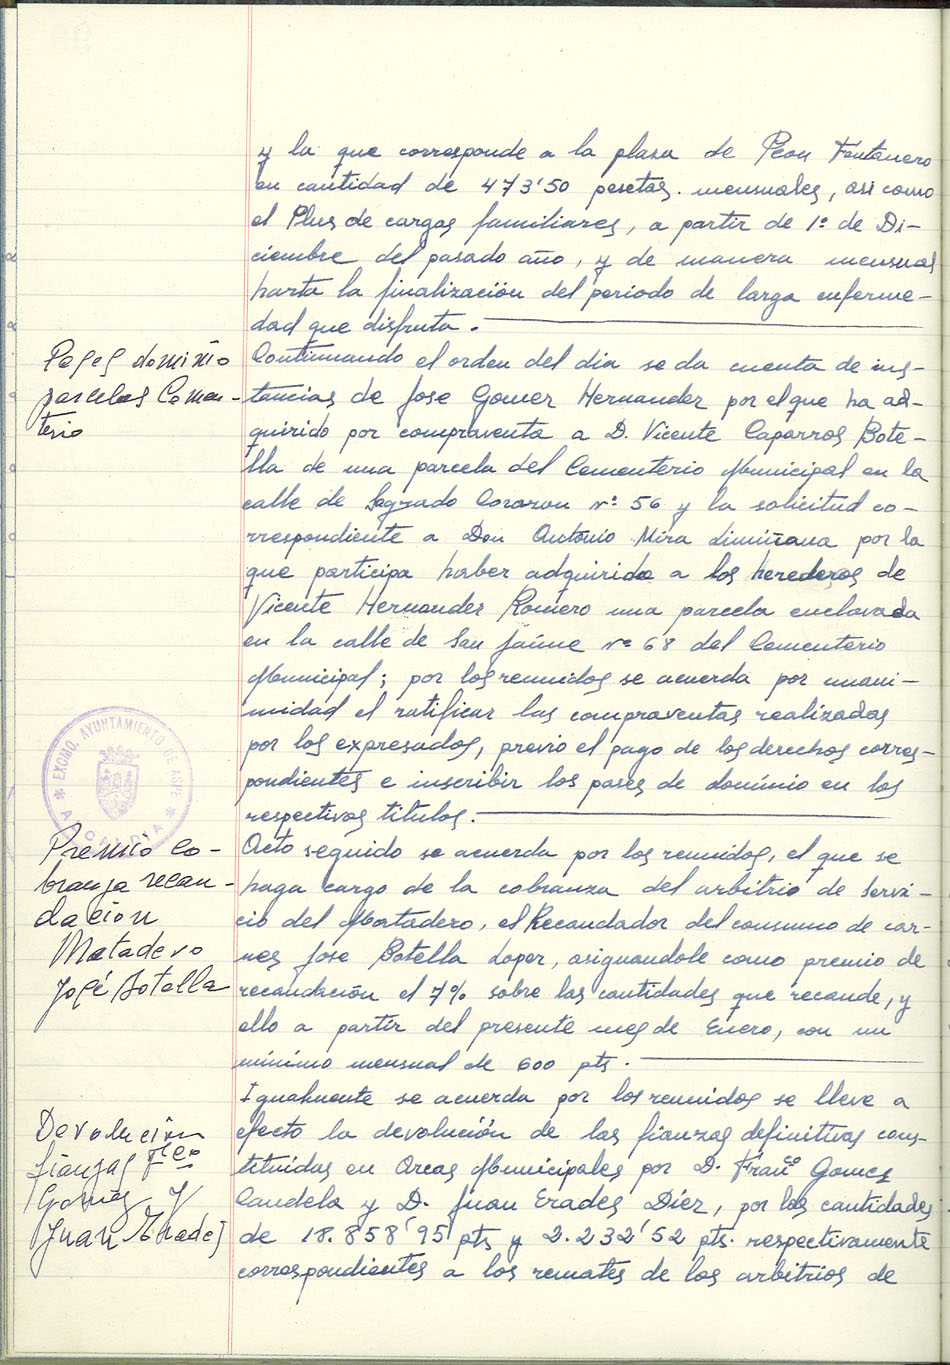 y la que corresponde a la plaza de Peon Fontanero
en cantidad de 473'50 pesetas mensuales, asi como
el Plus de cargas familiares, a partir de 1º de Di-
ciembre del pasado año, y de manera mensual
hasta la finalización del periodo de larga enferme-
dad que disfruta.
Pases dominio
parcelas Cemen-
terio
Continuando el orden del dia se da cuenta de ins-
tancias de Jose Gomez Hernandez por el que ha ad-
quirido por compraventa a D. Vicente Caparros Bote-
lla de una parcela del Cementerio Municipal en la
calle de Sagrado Corazon nº 56 y la solicitud co-
rrespondiente a Don Antonio Mira Limiñana por la
que participa haber adquirido a los herederos de
Vicente Hernandez Romero una parcela enclavada
en la calle de San Jaime nº 68 del Cementerio
Municipal; por los reunidos se acuerda por unani-
midad el ratificar las compraventas realizadas
por los expresados, previo el pago de los derechos corres-
pondientes e inscribir los pases de dominio en los
respectivos titulos.
EXCMO. AYUNTAMIENTO DE ASPE
ALCALDIA
Premio co-
branza recau-
dación
Matadero
José Botella
Acto seguido se acuerda por los reunidos, el que se
haga cargo de la cobranza del arbitrio de servi-
cio del Matadero, el Recaudador del consumo de car-
nes Jose Botella Lopez, asignandole como premio de
recaudación el 7% sobre las cantidades que recaude, y
ello a partir del presente mes de Enero, con un
minimo mensual de 600 pts.
Devolución
fianzas Fco
Gomez y
Juan Erades
Igualmente se acuerda por los reunidos se lleve a
efecto la devolución de las fianzas definitivas cons-
tituidas en Arcas Municipales por D. Franco Gomez
Candela y D. Juan Erades Diez, por las cantidades
de 18.858'95 pts y 2.232'52 pts. respectivamente
correspondientes a los remates de los arbitrios de